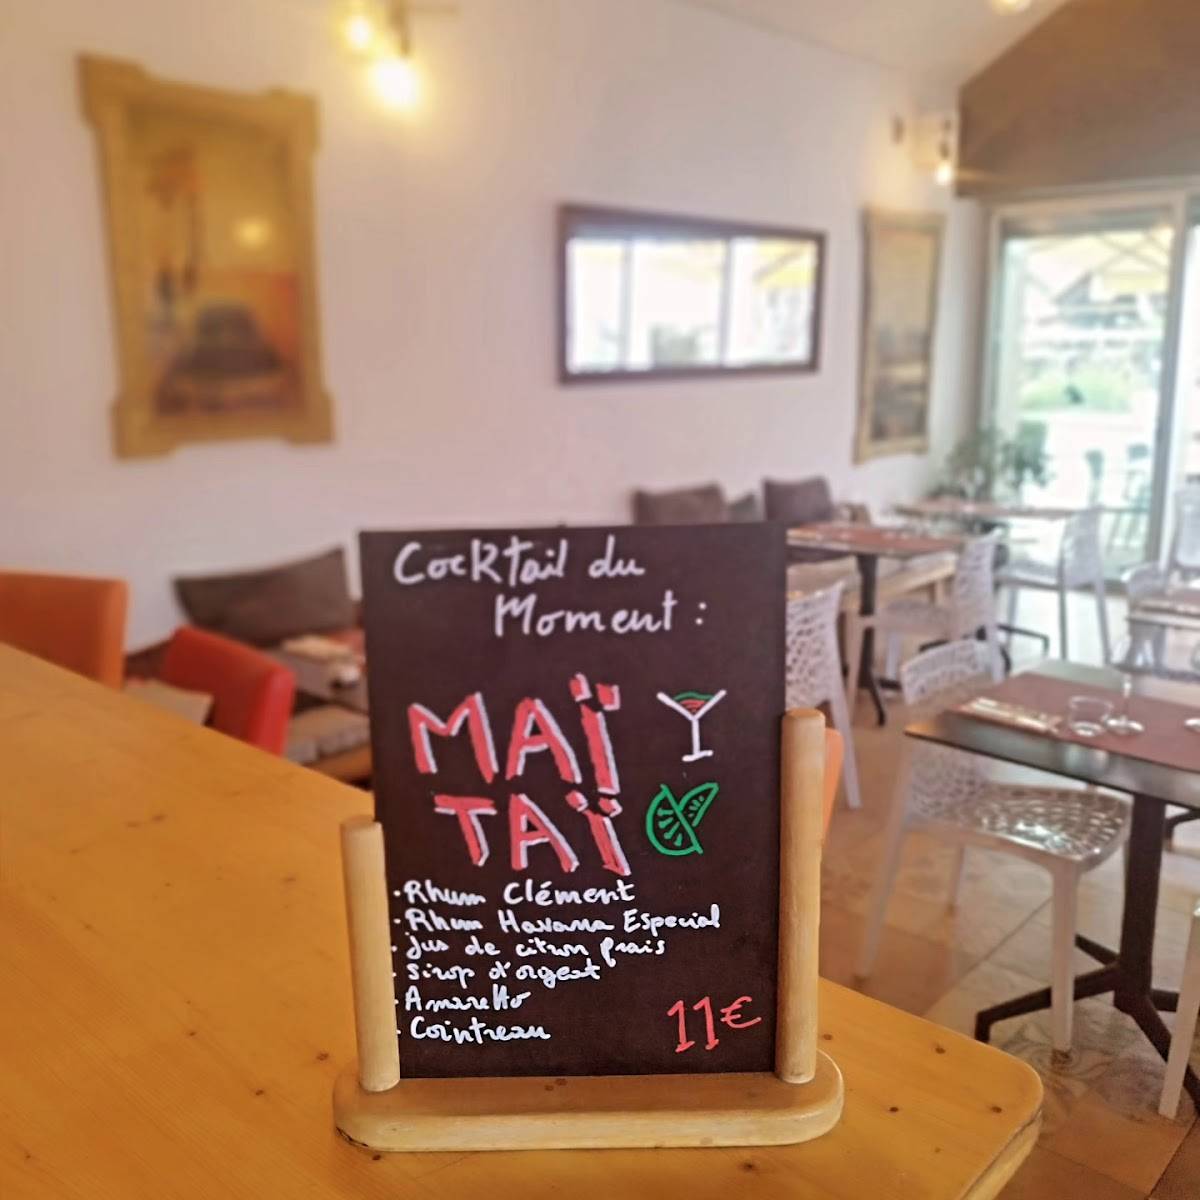 Cocktail du
Moment :
MAÏ
TAÏ
· Rhum Clément
· Rhum Havana Especial
· jus de citron frais
· sirop d'orgeat
· Amaretto
· Cointreau
11€